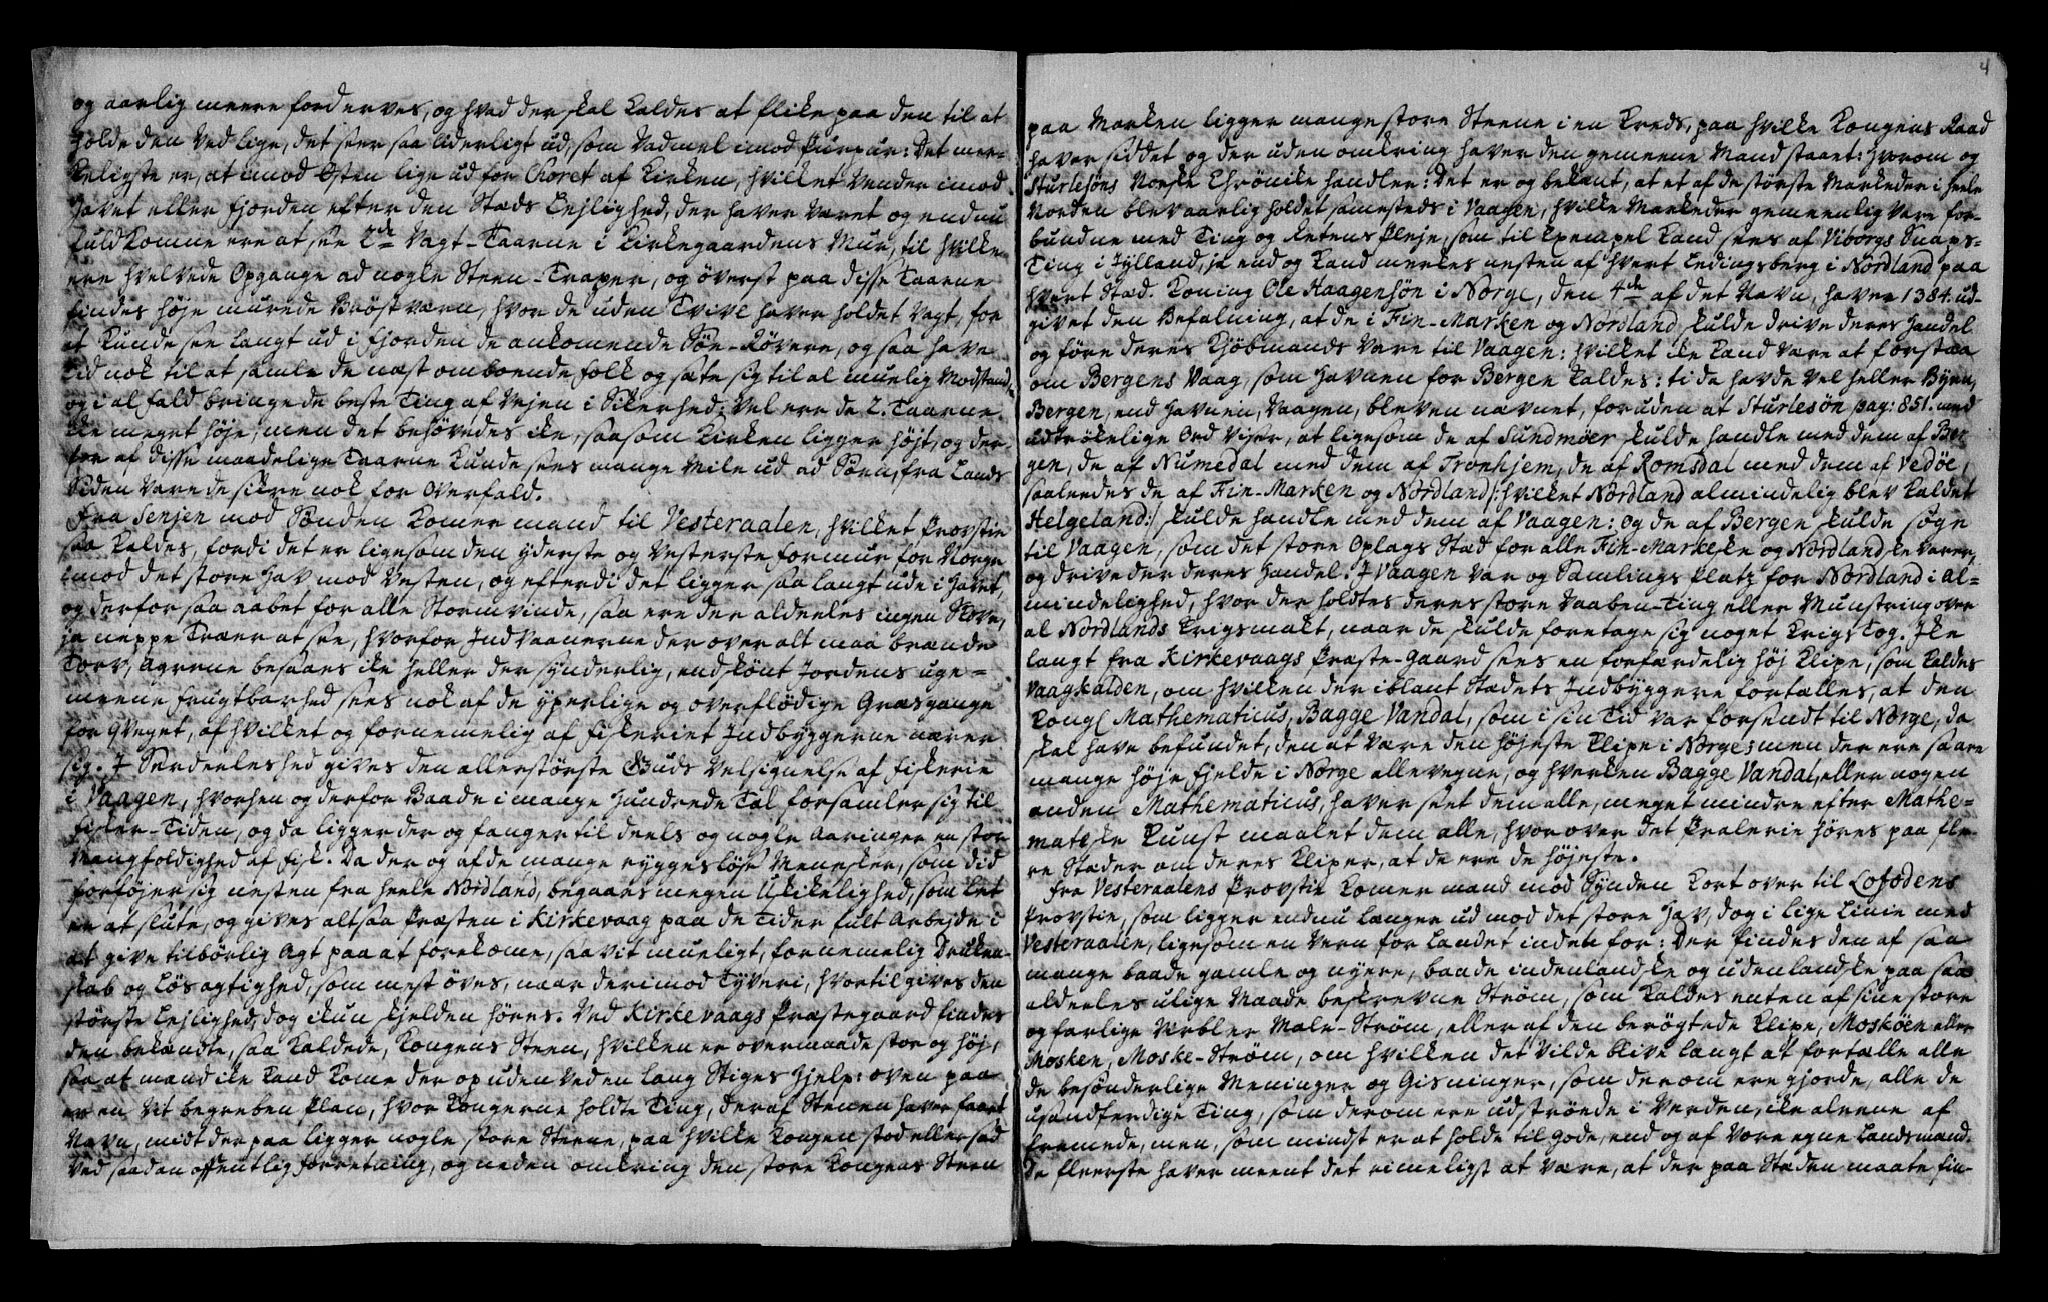 og aarlig meere forderves, og hved der skal kaldes at flike paa den til at
holde den ved lige, det seer saa liderligt ud, som Vadmel imod Purpur: Det mer-
keligste er, at imod Østen lige ud for Choret af Kirken, hvilket vender imod
Havet eller Fjorden efter den Stæds Lejlighed, der haver været og endnu
fuldkomne ere at see 2de Vagt-Taarne i Kirkegaardens Mur, til hvilke
ere hvelvede Opgange ad nogle Steen-Traper, og øverst paa disse Taarne
findes høje murede Brøstværn, hvor de uden Tvivl haver holdet Vagt, for
at kunde see langt ud i Fjorden de ankomende Søe-Røvere, og saa have
Tid nok til at samle de næst omboende Folk og sæte sig til al muelig Modstand,
og i al Fald bringe de beste Ting af Vejen i Sikerhed; Vel ere de 2. Taarne
ike meget høje, men det behøvedes ike, saasom Kirken ligger højt, og der-
for af disse maadelige Taarne kunde sees mange Mile ud ad Søen, fra Lands
Siden vare de sikre nok for Overfald.
Fra Senjen mod Sønden komer mand til Vesteraalen, hvilket Provstie
saa kaldes, fordi det er ligesom den yderste og vesterste Formur for Norge
imod det store Hav mod Vesten, og efterdi det ligger saa langt ude i Havet,
og derfor saa aabet for alle Stormvinde, saa ere der aldeeles ingen Skove,
ja neppe Træer at see, hvorfor Indvaanerne der over alt maa brænde
Torv, Agrene besaaes ike heller der synderlig, endskønt Jordens uge-
meene Frugtbarhed sees nok af de yperlige og overflødige Græsgange
for Qveget, af hvilket og fornemelig af Fiskeriet Indbyggerne nærer
sig. I Særdeeleshed gives den allerstørste Guds Velsignelse af Fiskerie
i Vaagen, hvorhen og derfor Baade i mange Hundrede Tal forsamler sig til
Fisker-Tiden, og da ligger der og fanger til deels og nogle Aaringer en stor
Mangfoldighed af Fisk. Da der og af de mange ryggesløse Menesker, som did
forføjer sig nesten fra heele Nordland, begaaes megen Uskikelighed, som let
er at slute, og gives altsaa Præsten i Kirkevaag paa de Tider fult Arbejde i
at give tilbørlig Agt paa at forekome, saa vit mueligt, fornemelig Druken-
skab og Løsagtighed, som mest øves, naar derimod Tyveri, hvortil gives den
største Lejlighed, dog ikun sjelden høres. Ved Kirkevaags Præstegaard findes
den bekandte, saa kaldede, Kongens Steen, hvilken er overmaade stor og høj,
saa at mand ike kand kome der op uden ved en lang Stiges Hjelp: oven paa
er en vit begreben Plan, hvor Kongerne holdte Ting, deraf Stenen haver faaet
Navn, midt der paa ligger nogle store Steene, paa hvilke Kongen stod eller sad
ved saadan offentlig Forretning, og neden omkring den store Kongens Steen
4
paa Marken ligger mange store Steene i en Kreds, paa hvilke Kongens Raad
haver siddet og der uden omkring haver den gemeene Mand staaet: Hvorom og
Sturlesøns Norske Chrønike handler: Det er og bekant, at et af de største Markeder i heele
Norden blev aarlig holdet sammesteds i Vaagen, hvilke Markeder gemeenlig vare for-
bundne med Ting og Retens Pleje, som til Exempel kand sees af Viborgs Snaps-
Ting i Jylland, ja end og kand merkes nesten af hvert Ledingsberg i Nordland paa
hvert Stæd. Koning Ole Haagensøn i Norge, den 4de af det Navn, haver 1384. ud-
givet den Befalning, at de i Fin-Marken og Nordland skulde drive deres Handel
og føre deres Kjøbmands Vare til Vaagen: hvilket ike kand være at forstaa
om Bergens Vaag, som Havnen for Bergen kaldes: ti da havde vel heller Byen,
Bergen, end Havnen, Vaagen, bleven nævnet, foruden at Sturlesøn pag: 851. med
udtrøkelige Ord viser, at ligesom de af Sundmøer skulde handle med dem af Ber
gen, de af Numedal med dem af Tronhjem, de af Romsdal med dem af Vedøe,
saaleedes de af Fin-Marken og Nordland /: hvilket Nordland almindelig blev kaldet
Helgeland :/ skulde handle med dem af Vaagen: og de af Bergen skulde søge
til Vaagen, som det store Oplags Stæd for alle Fin-Markeske og Nordlandske Varer,
og drive der deres Handel. I Vaagen var og Samlings Platz for Nordland i Al-
mindelighed, hvor der holdtes deres store Vaaben-Ting eller Munstring over
al Nordlands Krigsmakt, naar de skulde foretage sig noget KrigsTog. Ike
langt fra Kirkevaags Præste-Gaard sees en forfærdelig høj Klipe, som kaldes
Vaagkalden, om hvilken der iblant Stædets Indbyggere fortælles, at den
Kongl Mathematicus, Bagge Vandal, som i sin Tid var forsendt til Norge, da
skal have befundet, den at være den højeste Klipe i Norge; men der ere saare
mange høje Fjelde i Norge allevegne, og hverken Bagge Vandal, eller nogen
anden Mathematicus, haver seet dem alle, meget mindre efter Mathe-
matiske Kunst maalet dem alle, hvorover det Pralerie høres paa fle-
re Stæder om deres Kliper, at de ere de højeste.
Fra Vesteraalens Provstie komer mand mod Synden kort over til Lofodens
Provstie, som ligger endnu længer ud mod det store Hav, dog i lige Linie med
Vesteraalen, ligesom en Vern for Landet inden for: Der findes den af saa
mange baade gamle og nyere, baade indenlandske og udenlandske paa saa
aldeeles ulige Maade beskrevne Strøm, som kaldes enten af sine store
og farlige Verbler Male-Strøm, eller af den berøgtede Klipe, Moskøen eller
Mosken, Moske-Strøm, om hvilken det vilde blive langt at fortælle alle
de besønderlige Meninger og Gisninger, som derom ere gjorde, alle de
usandferdige Ting, som derom ere udstrøede i Verden, ike aleene af
Fremede, men, som mindst er at holde til gode, end og af vore egne Landsmænd.
De fleerste haver meent det rimeligst at være, at der paa Stæden maate fin-